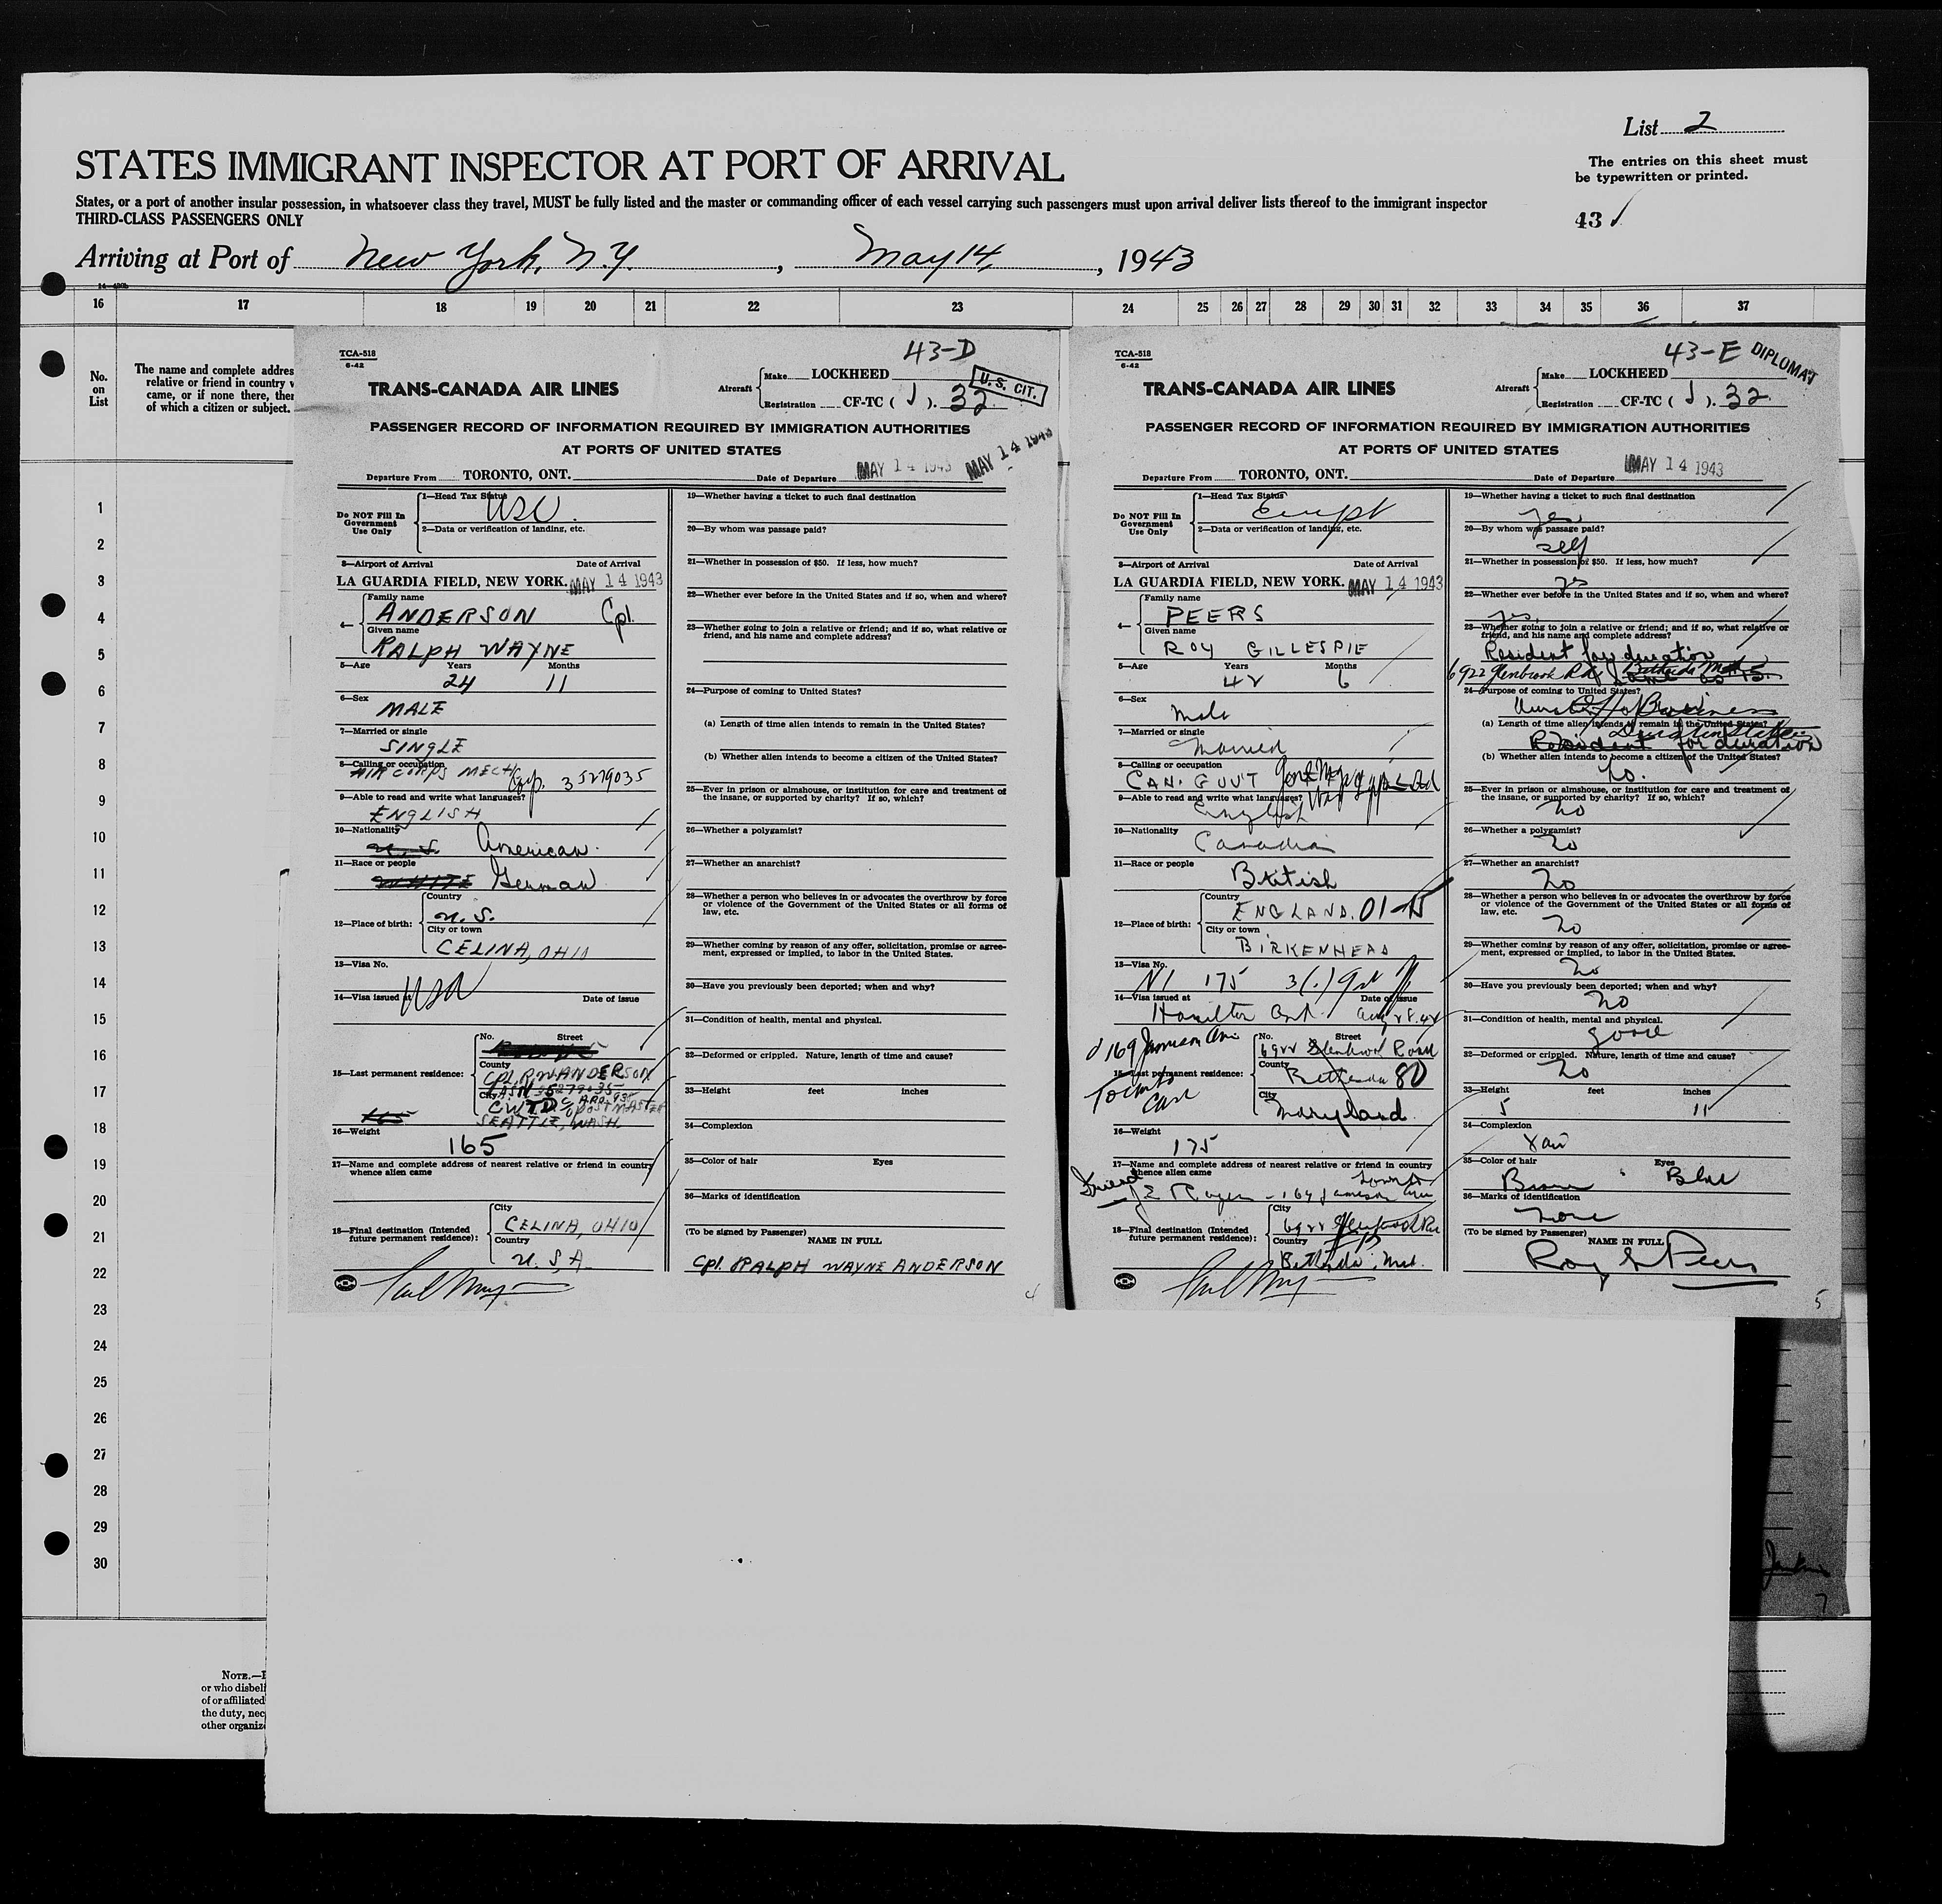 List 2
STATES IMMIGRANT INSPECTOR AT PORT OF ARRIVAL
The entries on this sheet must
be typewritten or printed.
States, or a port of another insular possession, in whatsoever class they travel, MUST be fully listed and the master or commanding officer of each vessel carrying such passengers must upon arrival deliver lists thereof to the immigrant inspector
THIRD-CLASS PASSENGERS ONLY
43
Arriving at Port of New York, N.Y., May 14, 1943
16 17 18 19 20 21 22 23 24 25 26 27 28 29 30 31 32 33 34 35 36 37
No.
on
List
The name and complete addres
relative or friend in country w
came, or if none there, ther
of which a citizen or subject.
1
2
3
4
5
6
7
8
9
10
11
12
13
14
15
16
17
18
19
20
21
22
23
24
25
26
27
28
29
30
NOTE.—
or who disbel
of or affiliated
the duty, nec
other organiz
TCA-518
6-42
43-D
TRANS-CANADA AIR LINES
Aircraft
Make LOCKHEED
Registration CF-TC ( J ). 32
U. S. CIT.
PASSENGER RECORD OF INFORMATION REQUIRED BY IMMIGRATION AUTHORITIES
AT PORTS OF UNITED STATES
Departure From TORONTO, ONT. Date of Departure MAY 14 1943 MAY 14 1943
Do NOT Fill In
Government
Use Only
1—Head Tax Status
USC.
2—Data or verification of landing, etc.
3—Airport of Arrival Date of Arrival
LA GUARDIA FIELD, NEW YORK. MAY 14 1943
4—
Family name
ANDERSON Cpl.
Given name
RALPH WAYNE
5—Age Years Months
24 11
6—Sex
MALE
7—Married or single
SINGLE
8—Calling or occupation
AIR CORPS MECH Corp. 35279035
9—Able to read and write what languages?
ENGLISH
10—Nationality
U.S. American.
11—Race or people
WHITE German
12—Place of birth:
Country
U.S.
City or town
CELINA, OHIO
13—Visa No.
14—Visa issued at Date of issue
USA
15—Last permanent residence:
No. Street
County
CPL. R.W. ANDERSON
City ASN 35279035
CWTD c/o POSTMASTER
SEATTLE, WASH
165
16—Weight
165
17—Name and complete address of nearest relative or friend in country
whence alien came
18—Final destination (Intended
future permanent residence):
City
CELINA, OHIO
Country
U.S.A.
19—Whether having a ticket to such final destination
20—By whom was passage paid?
21—Whether in possession of $50. If less, how much?
22—Whether ever before in the United States and if so, when and where?
23—Whether going to join a relative or friend; and if so, what relative or
friend, and his name and complete address?
24—Purpose of coming to United States?
(a) Length of time alien intends to remain in the United States?
(b) Whether alien intends to become a citizen of the United States?
25—Ever in prison or almshouse, or institution for care and treatment of
the insane, or supported by charity? If so, which?
26—Whether a polygamist?
27—Whether an anarchist?
28—Whether a person who believes in or advocates the overthrow by force
or violence of the Government of the United States or all forms of
law, etc.
29—Whether coming by reason of any offer, solicitation, promise or agree-
ment, expressed or implied, to labor in the United States.
30—Have you previously been deported; when and why?
31—Condition of health, mental and physical.
32—Deformed or crippled. Nature, length of time and cause?
33—Height feet inches
34—Complexion
35—Color of hair Eyes
36—Marks of identification
(To be signed by Passenger)
NAME IN FULL
Cpl. RALPH WAYNE ANDERSON
4
TCA-518
6-42
43-E DIPLOMAT
TRANS-CANADA AIR LINES
Aircraft
Make LOCKHEED
Registration CF-TC ( J ). 32
PASSENGER RECORD OF INFORMATION REQUIRED BY IMMIGRATION AUTHORITIES
AT PORTS OF UNITED STATES
Departure From TORONTO, ONT. Date of Departure MAY 14 1943
Do NOT Fill In
Government
Use Only
1—Head Tax Status
Exempt
2—Data or verification of landing, etc.
3—Airport of Arrival Date of Arrival
LA GUARDIA FIELD, NEW YORK. MAY 14 1943
4—
Family name
PEERS
Given name
ROY GILLESPIE
5—Age Years Months
42 6
6—Sex
Male
7—Married or single
Married
8—Calling or occupation
CAN. GOV'T
9—Able to read and write what languages?
English
10—Nationality
Canadian
11—Race or people
British
12—Place of birth:
Country
ENGLAND.
City or town
BIRKENHEAD
13—Visa No.
175 3(1)
14—Visa issued at Date of issue
Hamilton Ont. Aug 28. 42
169 Jameson Ave
Toronto
Can
15—Last permanent residence:
No. Street
6922 Glenbrook Road
County
Bethesda 8D
City
Maryland
16—Weight
175
17—Name and complete address of nearest relative or friend in country
whence alien came
Friend
169 Jameson Ave
Toronto
18—Final destination (Intended
future permanent residence):
City
6922 Glenbrook Rd
Country
Bethesda, Md.
19—Whether having a ticket to such final destination
yes
20—By whom was passage paid?
self
21—Whether in possession of $50. If less, how much?
yes
22—Whether ever before in the United States and if so, when and where?
yes.
23—Whether going to join a relative or friend; and if so, what relative or
friend, and his name and complete address?
Resident for duration
6922 Glenbrook Rd Bethesda Md
same as 15.
24—Purpose of coming to United States?
Business
(a) Length of time alien intends to remain in the United States?
Resident for duration
(b) Whether alien intends to become a citizen of the United States?
no.
25—Ever in prison or almshouse, or institution for care and treatment of
the insane, or supported by charity? If so, which?
no
26—Whether a polygamist?
no
27—Whether an anarchist?
no
28—Whether a person who believes in or advocates the overthrow by force
or violence of the Government of the United States or all forms of
law, etc.
no
29—Whether coming by reason of any offer, solicitation, promise or agree-
ment, expressed or implied, to labor in the United States.
no
30—Have you previously been deported; when and why?
no
31—Condition of health, mental and physical.
good
32—Deformed or crippled. Nature, length of time and cause?
no
33—Height feet inches
5 11
34—Complexion
Fair
35—Color of hair Eyes
Brown Blue
36—Marks of identification
none
(To be signed by Passenger)
NAME IN FULL
Roy G Peers
5
7